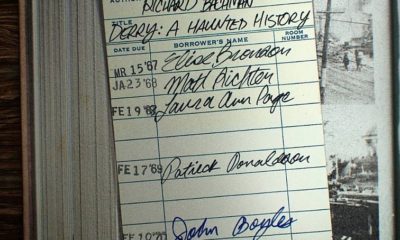 AUTHOR RICHARD BACHMAN
TITLE
DERRY: A HAUNTED HISTORY
DATE DUE BORROWER'S NAME ROOM NUMBER
MR 15 '67 Elise Brondon
JA 23 '68 Matt Richter
FE 19 '68 Laura Ann Page
FE 17 '69 Patrick Donaldson
FE 10 '70 John Boyles